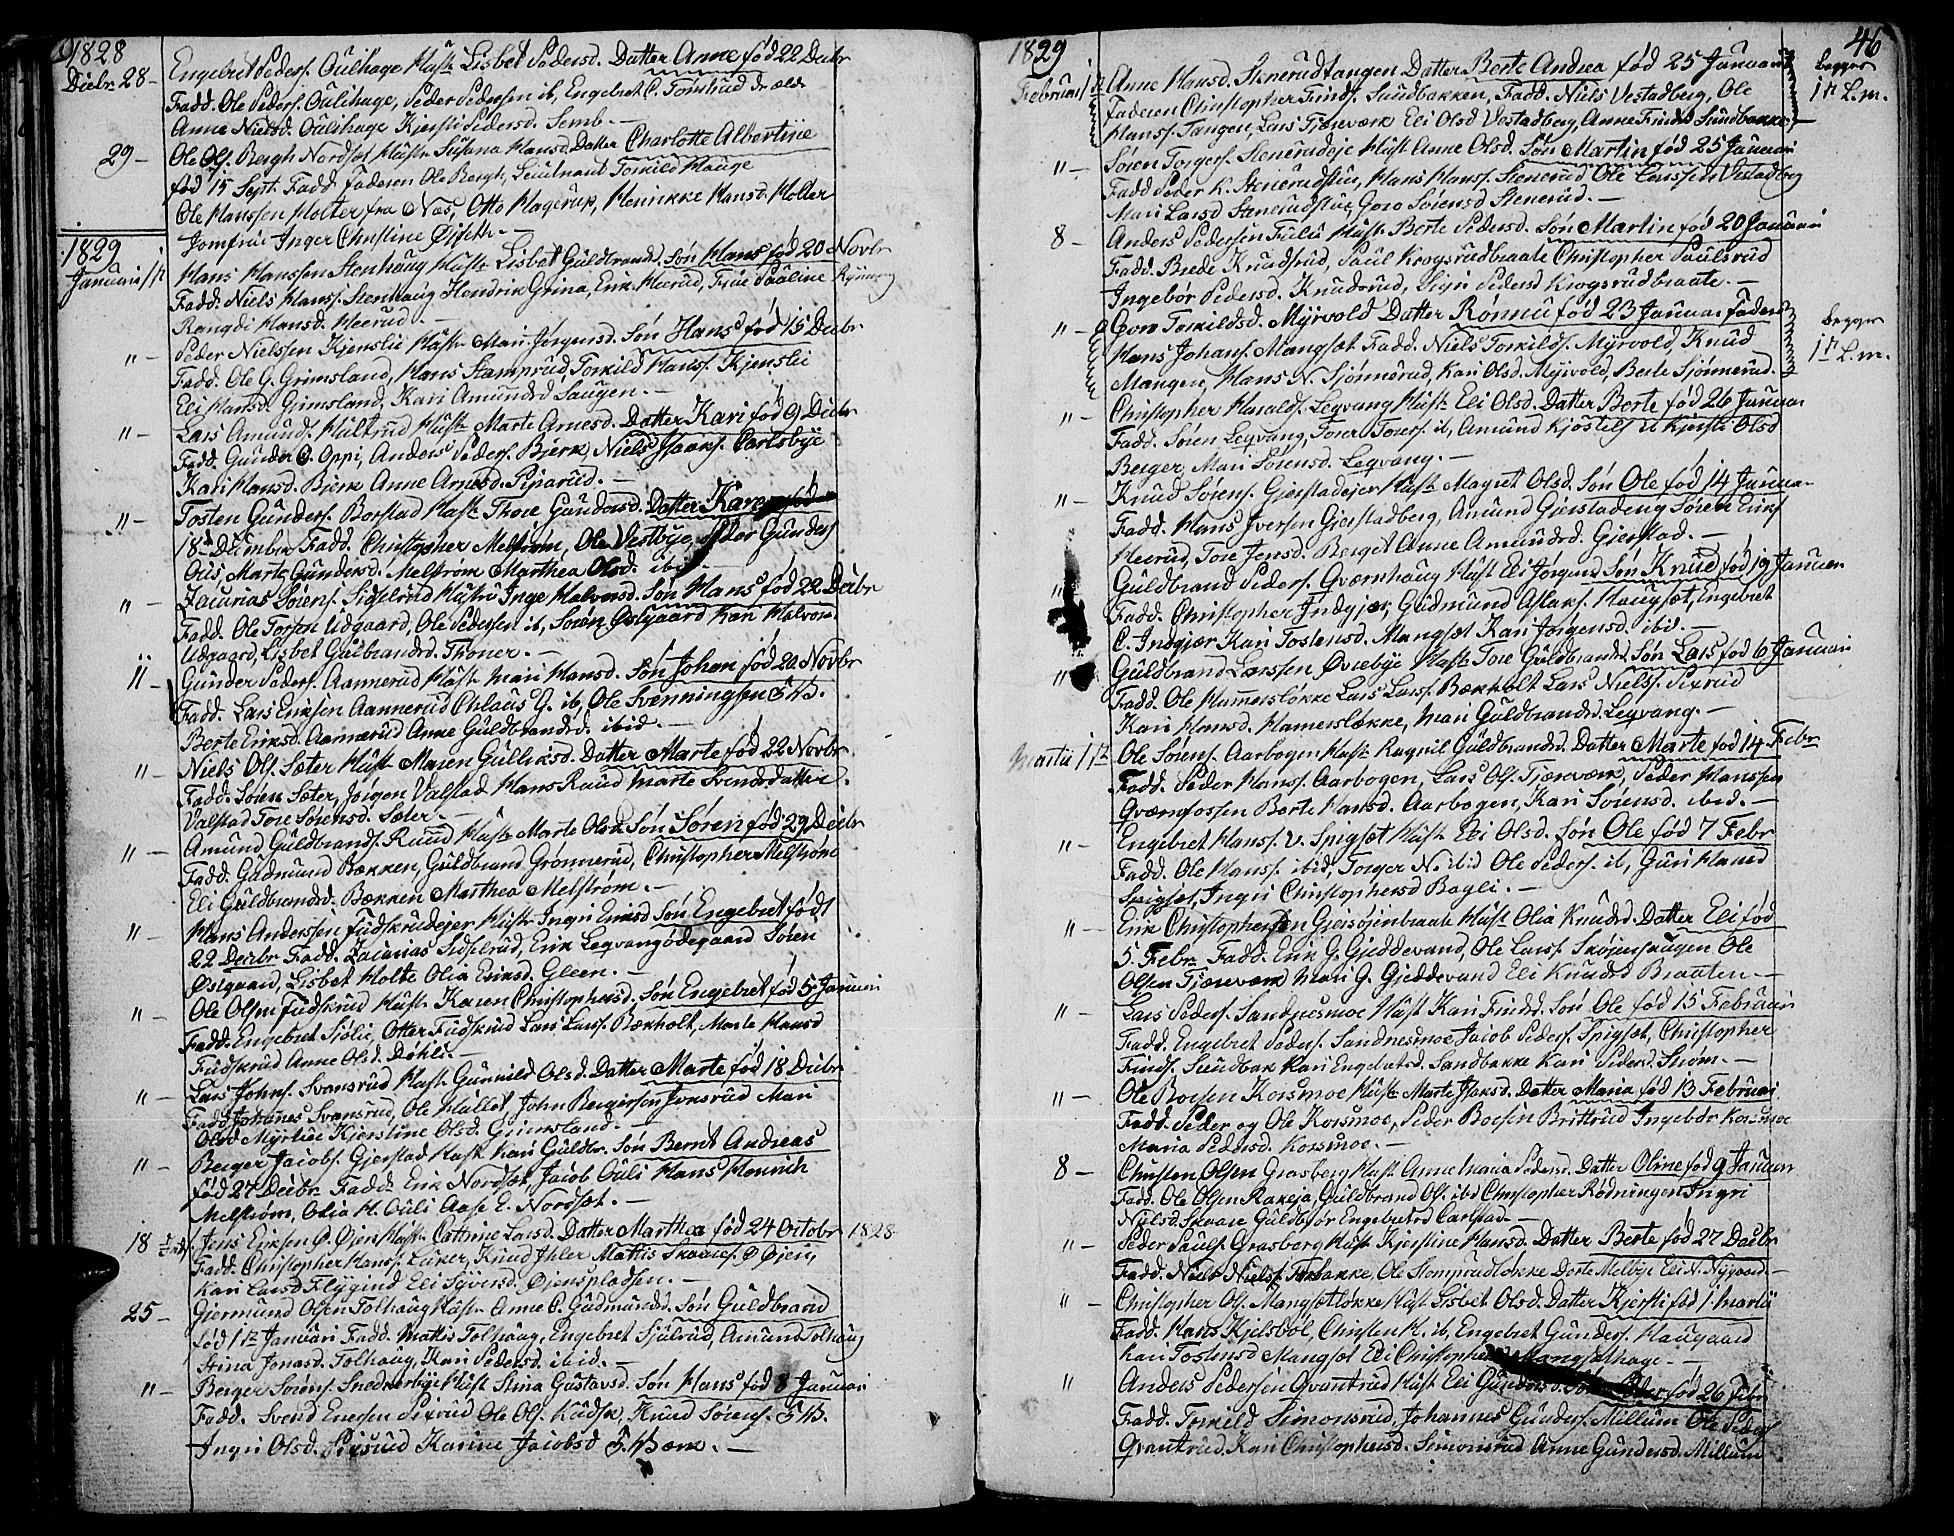 1828
Decbr 28 – Engebret Peders. Oulihage Hust Lisbet Pedersd. Datter Anne fød 22 Decbr
Fadd. Ole Peders. Oulihage, Peder Pedersen ib, Engebret C. Tomterud
Anne Nielsd. Oulihage Kjersti Pedersd. Semb. –
29 – Ole Ols. Bergh Nordsæt Hust. Susana Hansd. Datter Charlotte Albertine
fød 15 Sept. Fadd. faderen Ole Bergh, Leutnant Torkild Hauge
Ole Hanssen Holter fra Næs, Otto Hagerup, Henrikke Hansd. Holter
Jomfrue Inger Christine –
1829
Januari 1ste Hans Hanssen Stenhaug Hust. Lisbet Guldbrandsd. Søn Hans fød 20 Novbr
Fadd. Niels Hans. Stenhaug Hendrik Grina, Erik Heerud, Pauline
Rangdi Hansd. Heerud. –
" – Peder Nielssen Kjenslie Hust. Mari Jørgensd. Søn Hans fød 15 Decbr
Fadd. Ole G. Grimsland, Hans Stamprud, Torkild Hans. Kjenslie
Eli Hansd. Grimsland, Kari Amundsd Haugen. –
" – Lars Amunds. Hultrud Hust. Marte Arnesd. Datter Kari fød 9 Decbr
Fadd. Gunder O. Oppi, Anders Peders. Bjerk, Niels Isaks. Carlsbye
Kari Hansd. Bjerk Anne Arnesd. Piparud. –
" – Tosten Gunders. Borstad Hust. Thore Gundersd. Datter Karen fød
18de December Fadd. Christopher Melstrøm, Ole Vestbye, Peder Gunders
Ous, Marte Gundersd. Melstrøm Marthea Olsd. ibid –
" – Zacarias Sørens. Sidselrud Hustr Inge Halvorsd. Søn Hans fød 22 Decbr
Fadd. Ole Torsen Udgaard, Ole Pedersen ib, Søren Østgaard Kari Halvors
Udgaard, Lisbet Gulbrandsd. Thoner. –
" – Gunder Peders. Aannerud Hust. Mari Hansd. Søn Johan fød 20 Novbr
Fadd. Lars Eriksen Aannerud Ole Svenningsen
Berte Eriksd. Aannerud Anne Guldbrandsd. ibid. –
" – Niels Ols. Sæter Hust. Maren Gulliksd. Datter Marte fød 22 Novbr
Fadd. Søren Sæter, Jørgen Valstad Hans Ruud Marte Svendsdatter
Valstad Tore Sørensd. Sæter. –
" – Amund Guldbrands. Ruud Hust. Marte Olsd. Søn Søren fød 29 Decbr
Fadd. Gudmund Bækken, Guldbrand Grønnerud, Christopher Melstrøm
Eli Guldbrandsd. Bækken Marthea Melstrøm. –
" – Hans Andersen Fudskrudejer Hust. Ingri Eriksd Søn Engebret født
22 Decbr Fadd. Zacarias Sidselrud, Erik Legvangødegaard Søren
Østgaard, Lisbet Holte Olia Eriksd. Gleen. –
" – Ole Olsen Fudskrud Hust. Karen Christophersd. Søn Engebret fød 5 Januari
Fadd. Engebret Sjølie, Otter Fudskrud Lars Lars. Bækholt, Marte Hansd
Fudskrud Anne Olsd. Døhli. –
" – Lars Johns. Svensrud Hust. Gunnild Olsd. Datter Marte fød 18 Decbr
Fadd. Johannes Svensrud, Ole Hallet John Bergersen Svensrud Mari
Olsd Myrlie Kjerstine Olsd. Grimsland. –
" – Berger Jacobs. Gjerstad Hust. Kari Guldbr. Søn Bernt Andreas
fød 27 Decbr Fadd. Erik Nordsæt, Jacob Ouli Hans Henrich
Melstrøm, Olia H. Ouli Aase E. Nordsæt. –
18 Jens Eriksen Ø. Øjen Hust. Cathrine Larsd. Datter Marthea fød 24 Octobr 1828
Fadd. Christopher Hans. Luker, Knud Ihler Mattis Skaanes. Ø Øjen,
Kari Larsd Flygind Eli Syversd. Øjenspladsen. –
25 – Gjermund Olsen Tolhaug Hust. Anne C. Gudmundsd. Søn Guldbrand
fød 1ste Januari Fadd. Mattis Tolhaug, Engebret Sjulsrud, Amund Tolhaug
Stina Jonasd. Tolhaug, Kari Pedersd. ibid. –
" – Berger Sørens. Snednerbye Hust. Stina Gustavsd. Søn Hans fød 8 Januari
Fadd. Svend Enersen Sixrud Ole Ols. Kudsk, Knud Sørens.
Ingri Olsd. Sixrud Karine Jacobsd –
1829
46
Februari 1ste Anne Hansd. Stenerudtangen Datter Berte Andrea fød 25 Januari
begges 1ste L.m.
Faderen Christopher Finds. Sundbakken, Fadd. Niels Vestadberg, Ole
Hans. Tangen, Lars Tjernværk Eli Olsd Vestadberg, Anne Findsd Sundbakke –
" – Søren Torgers. Stenerudeje Hust Anne Olsd. Søn Martin fød 25 Januari
Fadd Peder K. Stenerudstue, Hans Hans. Stenerud Ole Larssen Vestadberg
Mari Larsd Stenerudstue, Goro Sørensd Stenerud. –
8 – Anders Pedersen Fuli Hust. Berte Pedersd. Søn Martin fød 20 Januari
Fadd. Brede Knudsrud, Paul Krogsrudbraate Christopher Paulsrud
Ingebor Pedersd. Knudsrud, Sigri Pedersd Krogsrudbraate. –
" – Goro Torkildsd. Myrvold Datter Rønnu fød 23 Januar faderen
begges 1ste L.m.
Hans Johans. Mangset Fadd. Niels Torkilds. Myrvold, Knud
Mangen, Hans N. Sjønnerud, Kari Olsd. Myrvold, Berte Sjønnerud.
" – Christopher Haralds. Legvang Hust. Eli Olsd. Datter Berte fød 26 Januar
Fadd. Søren Legvang, Torer Torers. ib, Amund Kjostels. ib Kjersti Olsd
Berger, Mari Sørensd. Legvang. –
" – Knud Sørens. Gjerstadejer Hust. Magret Olsd. Søn Ole fød 14 Januar
Fadd. Hans Iversen Gjerstadberg, Amund Gjerstadeng Søren Eriks
Heerud, Tore Jensd. Berget Anne Amundsd. Gjerstad. –
" Guldbrand Peders. Qværnhaug Hust Eli Jørgensd Søn Knud fød 19 Januar
Fadd. Christopher Indgjær, Gudmund Aslaks. Haugset, Engebret
C. Indgjær Kari Tostensd. Mangset Kari Jørgensd. ibid. –
" Guldbrand Larssen Øvrebye Hust. Tore Guldbrandsd Søn Lars fød 6 Januari
Fadd. Ole Hamersløkke Lars Lars. Bækholt Lars Niels. Sixrud
Kari Hansd. Hamersløkke, Mari Guldbrandsd. Legvang. –
Martii 1ste Ole Sørens. Aarbogen Hust. Ragnil Guldbrandsd. Datter Marte fød 14 Febr
Fadd. Peder Hans. Aarbogen, Lars Ols. Tjernværk, Peder Hanssen
Qværnfossen Berte Hansd. Aarbogen, Kari Sørensd. ibid. –
" – Engebret Hans. V. Spigset Hust. Eli Olsd. Søn Ole fød 7 Febr
Fadd. Ole Hans. ibid, Torger N. ibid Ole Peders. ib, Guri Hansd
Spigset, Ingri Christophersd Bagli. –
" – Erik Christophersen Gjersøjenbraate Hust Olia Knudsd. Datter Eli fød
5. Febr. Fadd. Erik G. Gjeddevand, Ole Lars. Skøjenhaugen Ole
Olsen Tjernværk Mari G. Gjeddevand Eli Knudsd Braaten. –
" – Lars Peders. Sandnesmoe Hust Kari Findsd. Søn Ole fød 15 Februari
Fadd. Engebret Peders. Sandnesmoe Jacob Peders. Spigset, Christopher
Finds. Sundbak Kari Engebretsd. Sandbakke Kari Pedersd. Strøm. –
" – Ole Boesen Korsmoe Hust. Marte Isaksd. Datter Maria fød 13 Februari
Fadd. Peder og Ole Korsmoe, Peder Boesen Brittrud Ingebor Korsmoe
Maria Pedersd. Korsmoe. –
8 – Christen Olsen Grasberg Hust Anne Maria Pedersd. Datter Oline fød 9 Januari
Fadd. Ole Olsen Rakeja, Guldbrand Ols. ibid Christopher Rødningen Ingri
Nielsd. Skaare Guldbjør Engebretsd Carlstad –
" – Peder Pauls. Grasberg Hust Kjerstine Hansd. Datter Berte fød 27 Decbr
Fadd. Niels Niels. Torbakke, Ole Stomprudløkke Dorte Melbye Eli N. Nygaard –
" – Christopher Ols. Mangsetløkke Hust Lisbet Olsd. Datter Kjersti fød 1. Martii
Fadd. Hans Kjelsbøl, Christen H. ib, Engebret Gunders. Haugaard
Kari Tostensd Mangset Eli Christophersd Mangsethage. –
" Anders Pedersen Qvantrud Hust Eli Gundersd. Søn Peder fød 26 Febr
Fadd. Torkild Simonsrud, Johannes Gunders. Millum Ole Peders
Qvantrud, Kari Christophersd. Simonsrud Anne Gundersd. Millum